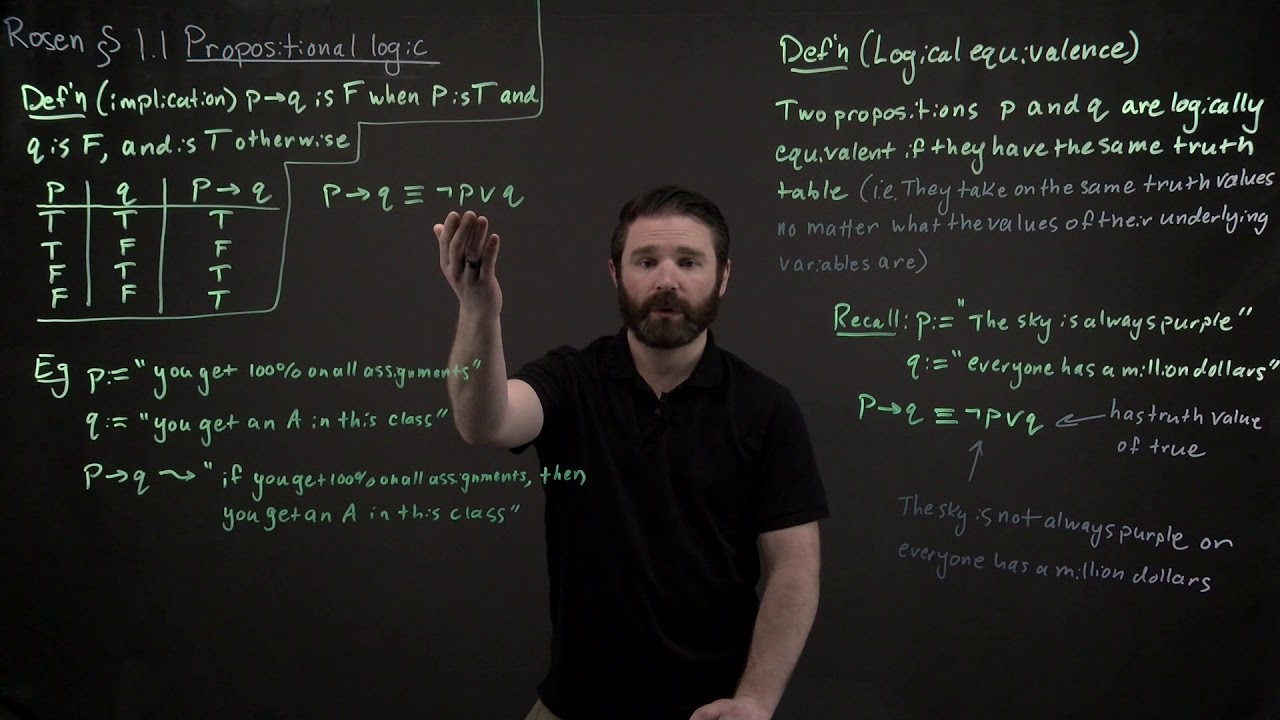 Rosen § 1.1 Propositional logic
Def'n (implication) p→q is F when p is T and
q is F, and is T otherwise
p q p→q
T T T
T F F
F T T
F F T
p→q ≡ ¬p∨q
Eg p:= "you get 100% on all assignments"
q:= "you get an A in this class"
p→q ⤳ "if you get 100% on all assignments, then
you get an A in this class"
Def'n (Logical equivalence)
Two propositions p and q are logically
equivalent if they have the same truth
table (i.e. They take on the same truth values
no matter what the values of their underlying
variables are)
Recall: p:= "The sky is always purple"
q:= "everyone has a million dollars"
p→q ≡ ¬p∨q ← has truth value
of true
↑
The sky is not always purple or
everyone has a million dollars